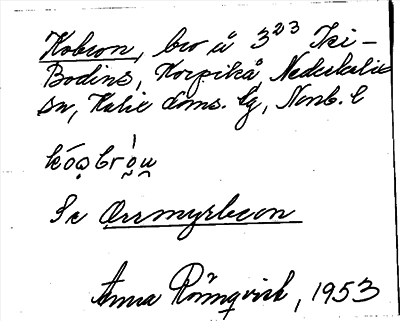 Kobron, bro å 3²³ Tri-
Bodins, Korpikå Nederkalix
sn, Kalix doms. lg, Nonb. l
kóǫbrò̭u̯
Se Orrmyrbron
Anna Rönnqvist, 1953